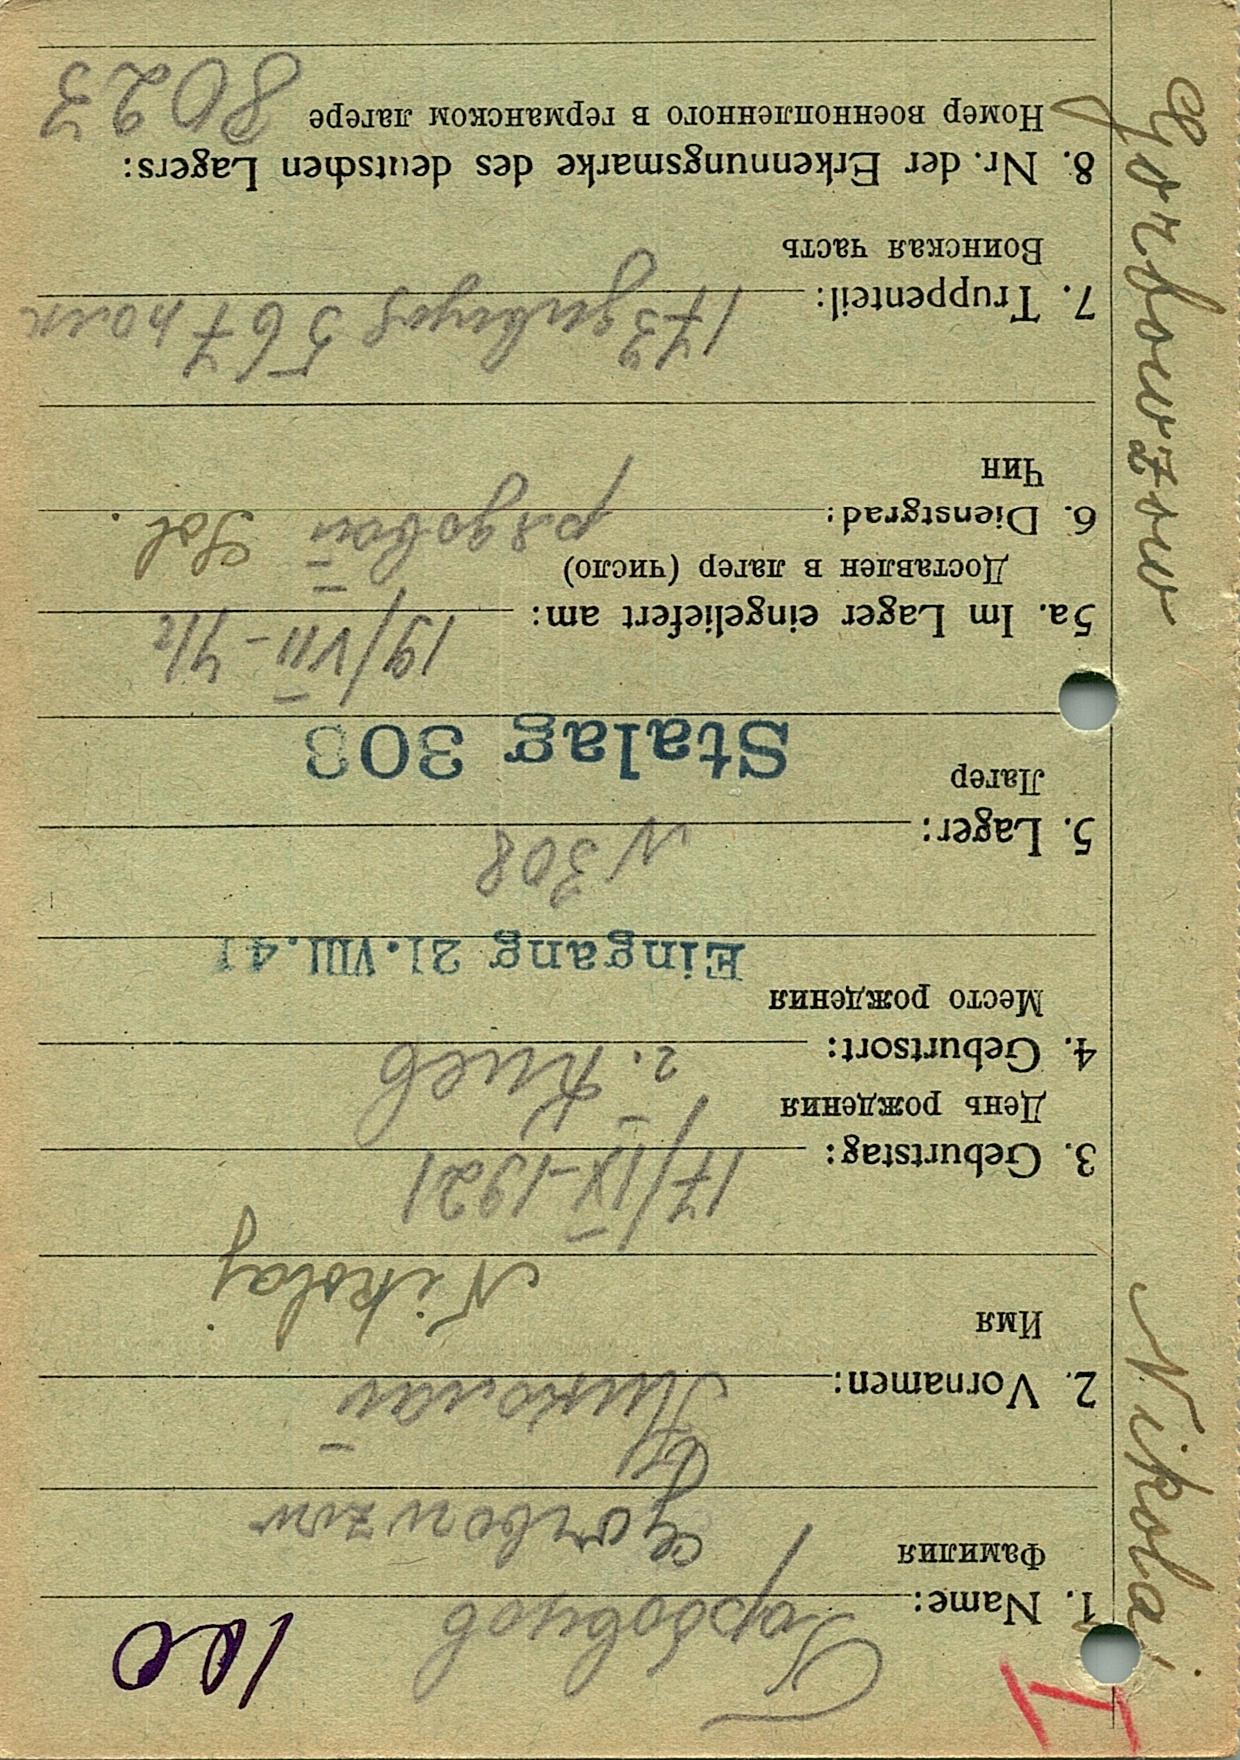 I
100
1. Name: Горбовцов
Фамилия
Gorbowzow
2. Vornamen: Николай
Имя
Nikolaj
3. Geburtstag: 17/IX-1921
День рождения
4. Geburtsort: г. Киев
Место рождения
Eingang 21.VIII.41
5. Lager: N 308
Лагер
Stalag 308
5a. Im Lager eingeliefert am: 19/VII-41г
Доставлен в лагер (число)
6. Dienstgrad: рядовой Sol.
Чин
7. Truppenteil: 173 дивиз 567 полк
Воинская часть
8. Nr. der Erkennungsmarke des deutschen Lagers:
Номер военнопленного в германском лагере 8023
Gorbowzow Nikolaj